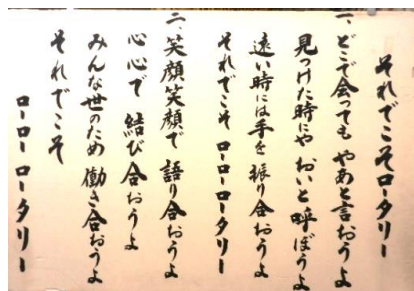 それでこそロータリー
一、どこで会っても やあと言おうよ
見つけた時にや おいと呼ぼうよ
遠い時には手を振り合おうよ
それでこそ ローロータリー
二、笑顔笑顔で 語り合おうよ
心心で 結び合おうよ
みんな世のため 働き合おうよ
それでこそ
ローローロータリー